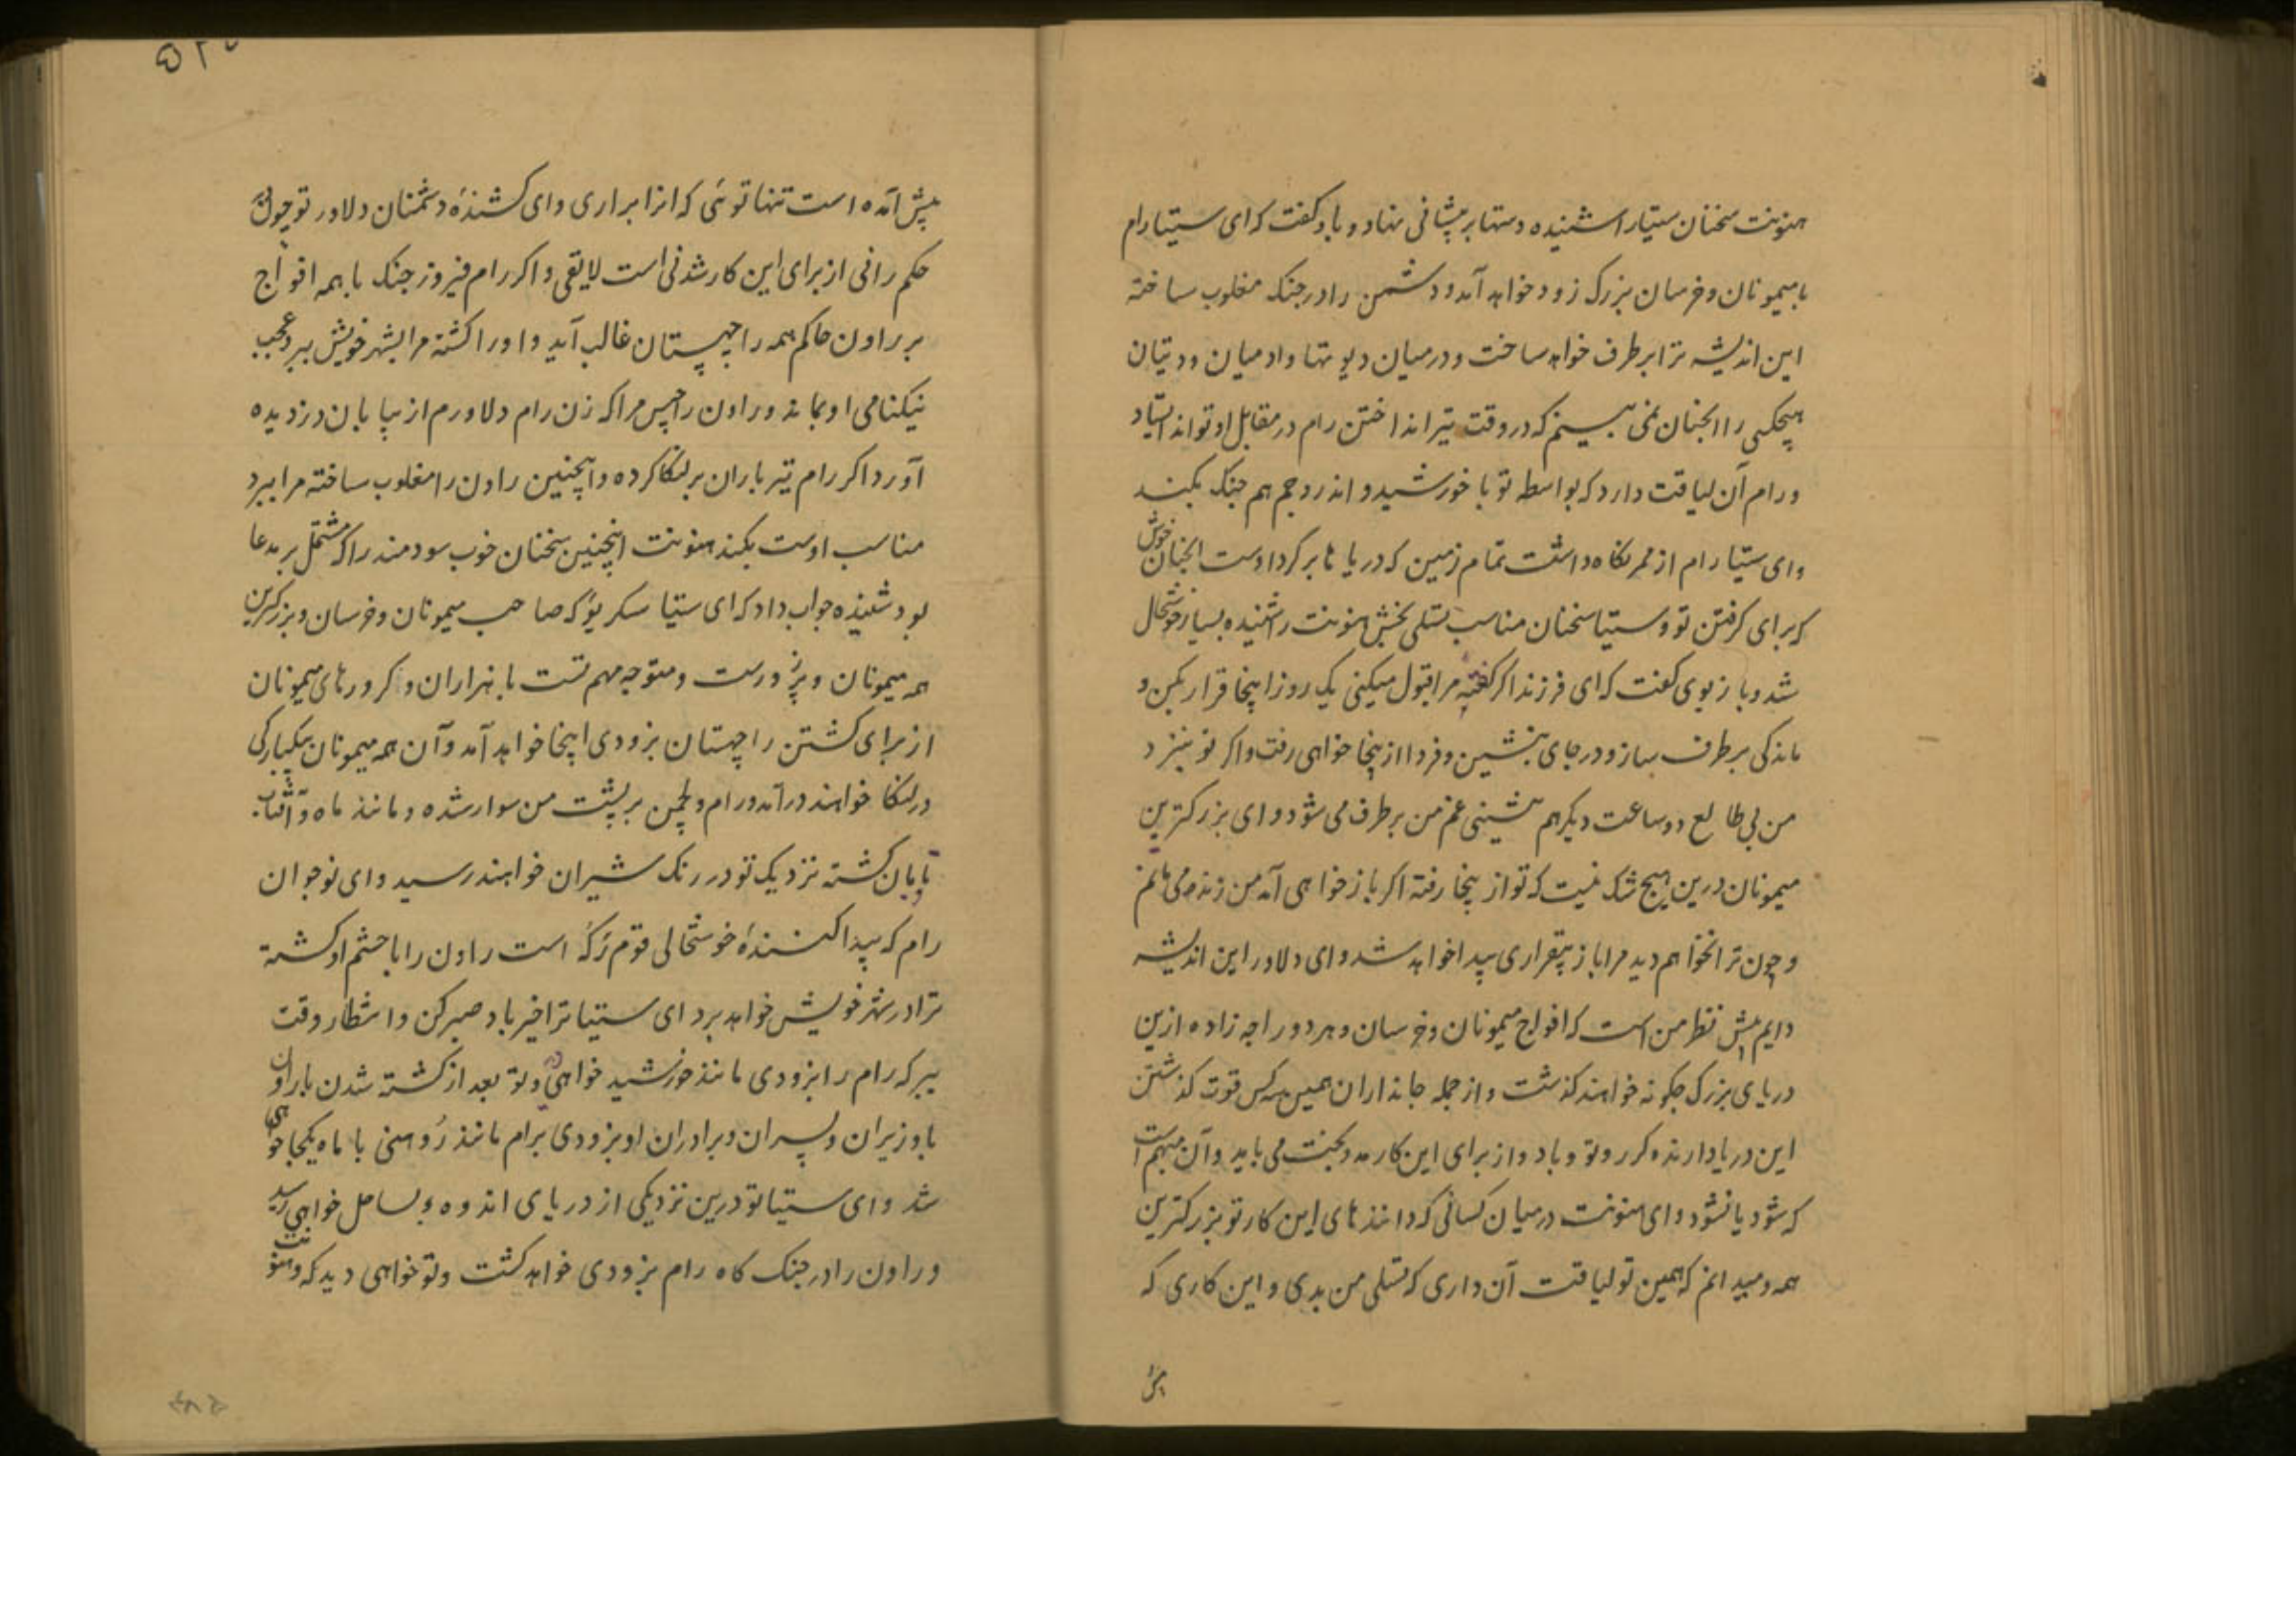 هنونت سخنان سیتا را شنیده دستها بر پیشانی نهاد و باو کفت که ای سیتا رام
با میمونان و خرسان بزرک زود خواهد آمد و دشمن را در جنک مغلوب ساخته
این اندیشه ترا برطرف خواهد ساخت و درمیان دیوتها و ادمیان و دیتیان
هیچکسی را انچنان نمی بینم که در وقت تیر انداختن رام در مقابل او تواند استاد
و رام آن لیاقت دارد که بواسطه تو با خورشید و اندر و جم هم جنک بکند
و ای سیتا رام از مر نکاه داشت تمام زمین که دریا با بر کرد اوست انچنان خوش
که برای کرفتن تو و سیتا سخنان مناسب تسلی بخش هنونت را شنیده بسیار خوشحال
شد و باز بوی کفت که ای فرزند اکر کفته مرا قبول میکنی یک روز اینجا قرار بکن و
ماندکی برطرف ساز و در جای بنشین و فردا از ینجا خواهی رفت و اکر تو نیز د
من بی طالع دو ساعت دیکر هم بنشینی غم من برطرف می شود و ای بزرکترین
میمونان درین هیچ شک نیست که تو از ینجا رفته اکر باز خواهی آمد من زنده می مانم
و چون ترا نخواهم دید مرا باز بیقراری پیدا خواهد شد و ای دلاور این اندیشه
دایم پیش نظر من است که افواج میمونان و خرسان و هر دو راجه زاده ازین
دریای بزرک چکونه خواهند کذشت و از جمله جانداران همین سه کس قوت کذشتن
این دریا دارند کرر و تو و باد و از برای این کار مدد بخت می باید و آن مبهم است
که شود یا نشود و ای هنونت درمیان کسانی که دانندهای این کار تو بزرکترین
همه و میدانم که همین تو لیاقت آن داری که تسلی من بدی و این کاری که
پیش
پیش آمده است تنها توئی که انرا براری و ای کشندهٔ دشمنان دلاور تو چون
حکم رانی از برای این کار شدنی است لایقی و اکر رام فیروز جنک با همه افواج
بر راون حاکم همه راچهستان غالب آید و او را کشته مرا بشهر خویش ببرد عجب
نیکنامی او بماند و راون راچهس مرا که زن رام دلاورم از بیابان دزدیده
آورد اکر رام تیر باران بر لنکا کرده و اینچنین راون را مغلوب ساخته مرا ببرد
مناسب اوست بکند هنونت اینچنین سخنان خوب سودمند را که مشتمل بر مدعا
بود شنیده جواب داد که ای سیتا سکریو که صاحب میمونان و خرسان و بزرکترین
همه میمونان و پرزورست و متوجه مهم تست با هزاران و کرورهای میمونان
از برای کشتن راچهستان بزودی اینجا خواهد آمد و آن همه میمونان بیکبارکی
در لنکا خواهند درآمد و رام و لچمن بر پشت من سوار شده و مانند ماه و آفتاب
تابان کشته نزدیک تو در رنک شیران خواهند رسید و ای نوجوان
رام که پیدا کنندهٔ خوشحالی قوم رکه است راون را با حشم او کشته
ترا در شهر خویش خواهد برد ای سیتا ترا خیر باد صبر کن و انتظار وقت
ببر که رام را بزودی مانند خورشید خواهی دید و تو بعد از کشته شدن راون
با وزیران و پسران و برادران او بزودی برام مانند روهنی با ماه یکجا خواهی
شد و ای سیتا تو درین نزدیکی از دریای اندوه بساحل خواهی رسید
و راون را در جنک کاه رام بزودی خواهد کشت و تو خواهی دید که و هنونت